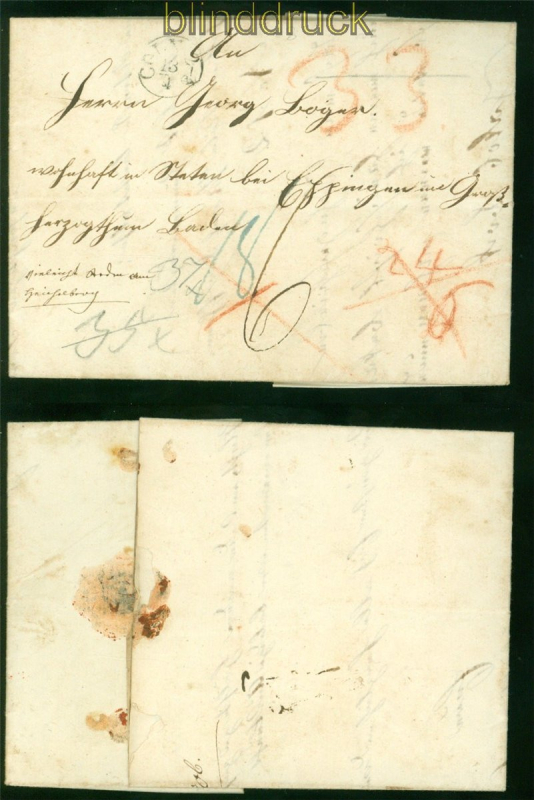 blinddruck
An
Herrn Georg Boger.
33
wohnhaft in Steten bei Eppingen im Groß-
herzogthum Baden
37/18
24
6
6
35x